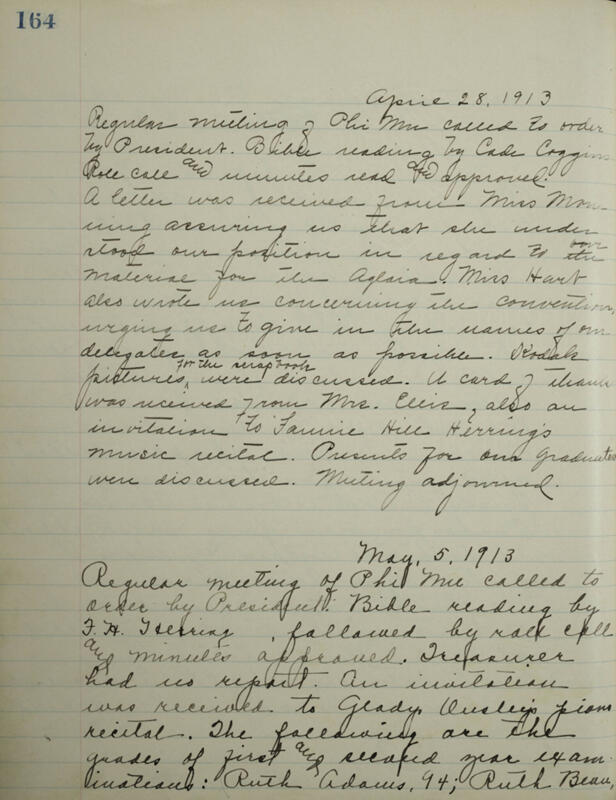 164
April 28, 1913
Regular meeting of Phi Mu called to order
by President. Bible reading by Cade Coggins
Role call and minutes read and approved.
A letter was received from Miss Mon-
ning assuring us that she under
stood our position in regard to the our
material for the Aglaia. Miss Hart
also wrote us concerning the convention,
urging us to give in the names of our
delegates as soon as possible. Kodak
pictures, for the scrapbook were discussed. A card of thanks
was received from Mrs. Ellis, also an
invitation to Fannie Hill Herring's
music recital. Presents for our graduates
were discussed. Meeting adjourned.
May, 5, 1913
Regular meeting of Phi Mu called to
order by President. Bible reading by
F. H. Herring, followed by roll call
and minutes approved. Treasurer
had no report. An invitation
was received to Gladys piano
recital. The following are the
grades of first and second year exam-
inations: Ruth Adams, 94; Ruth Bean,